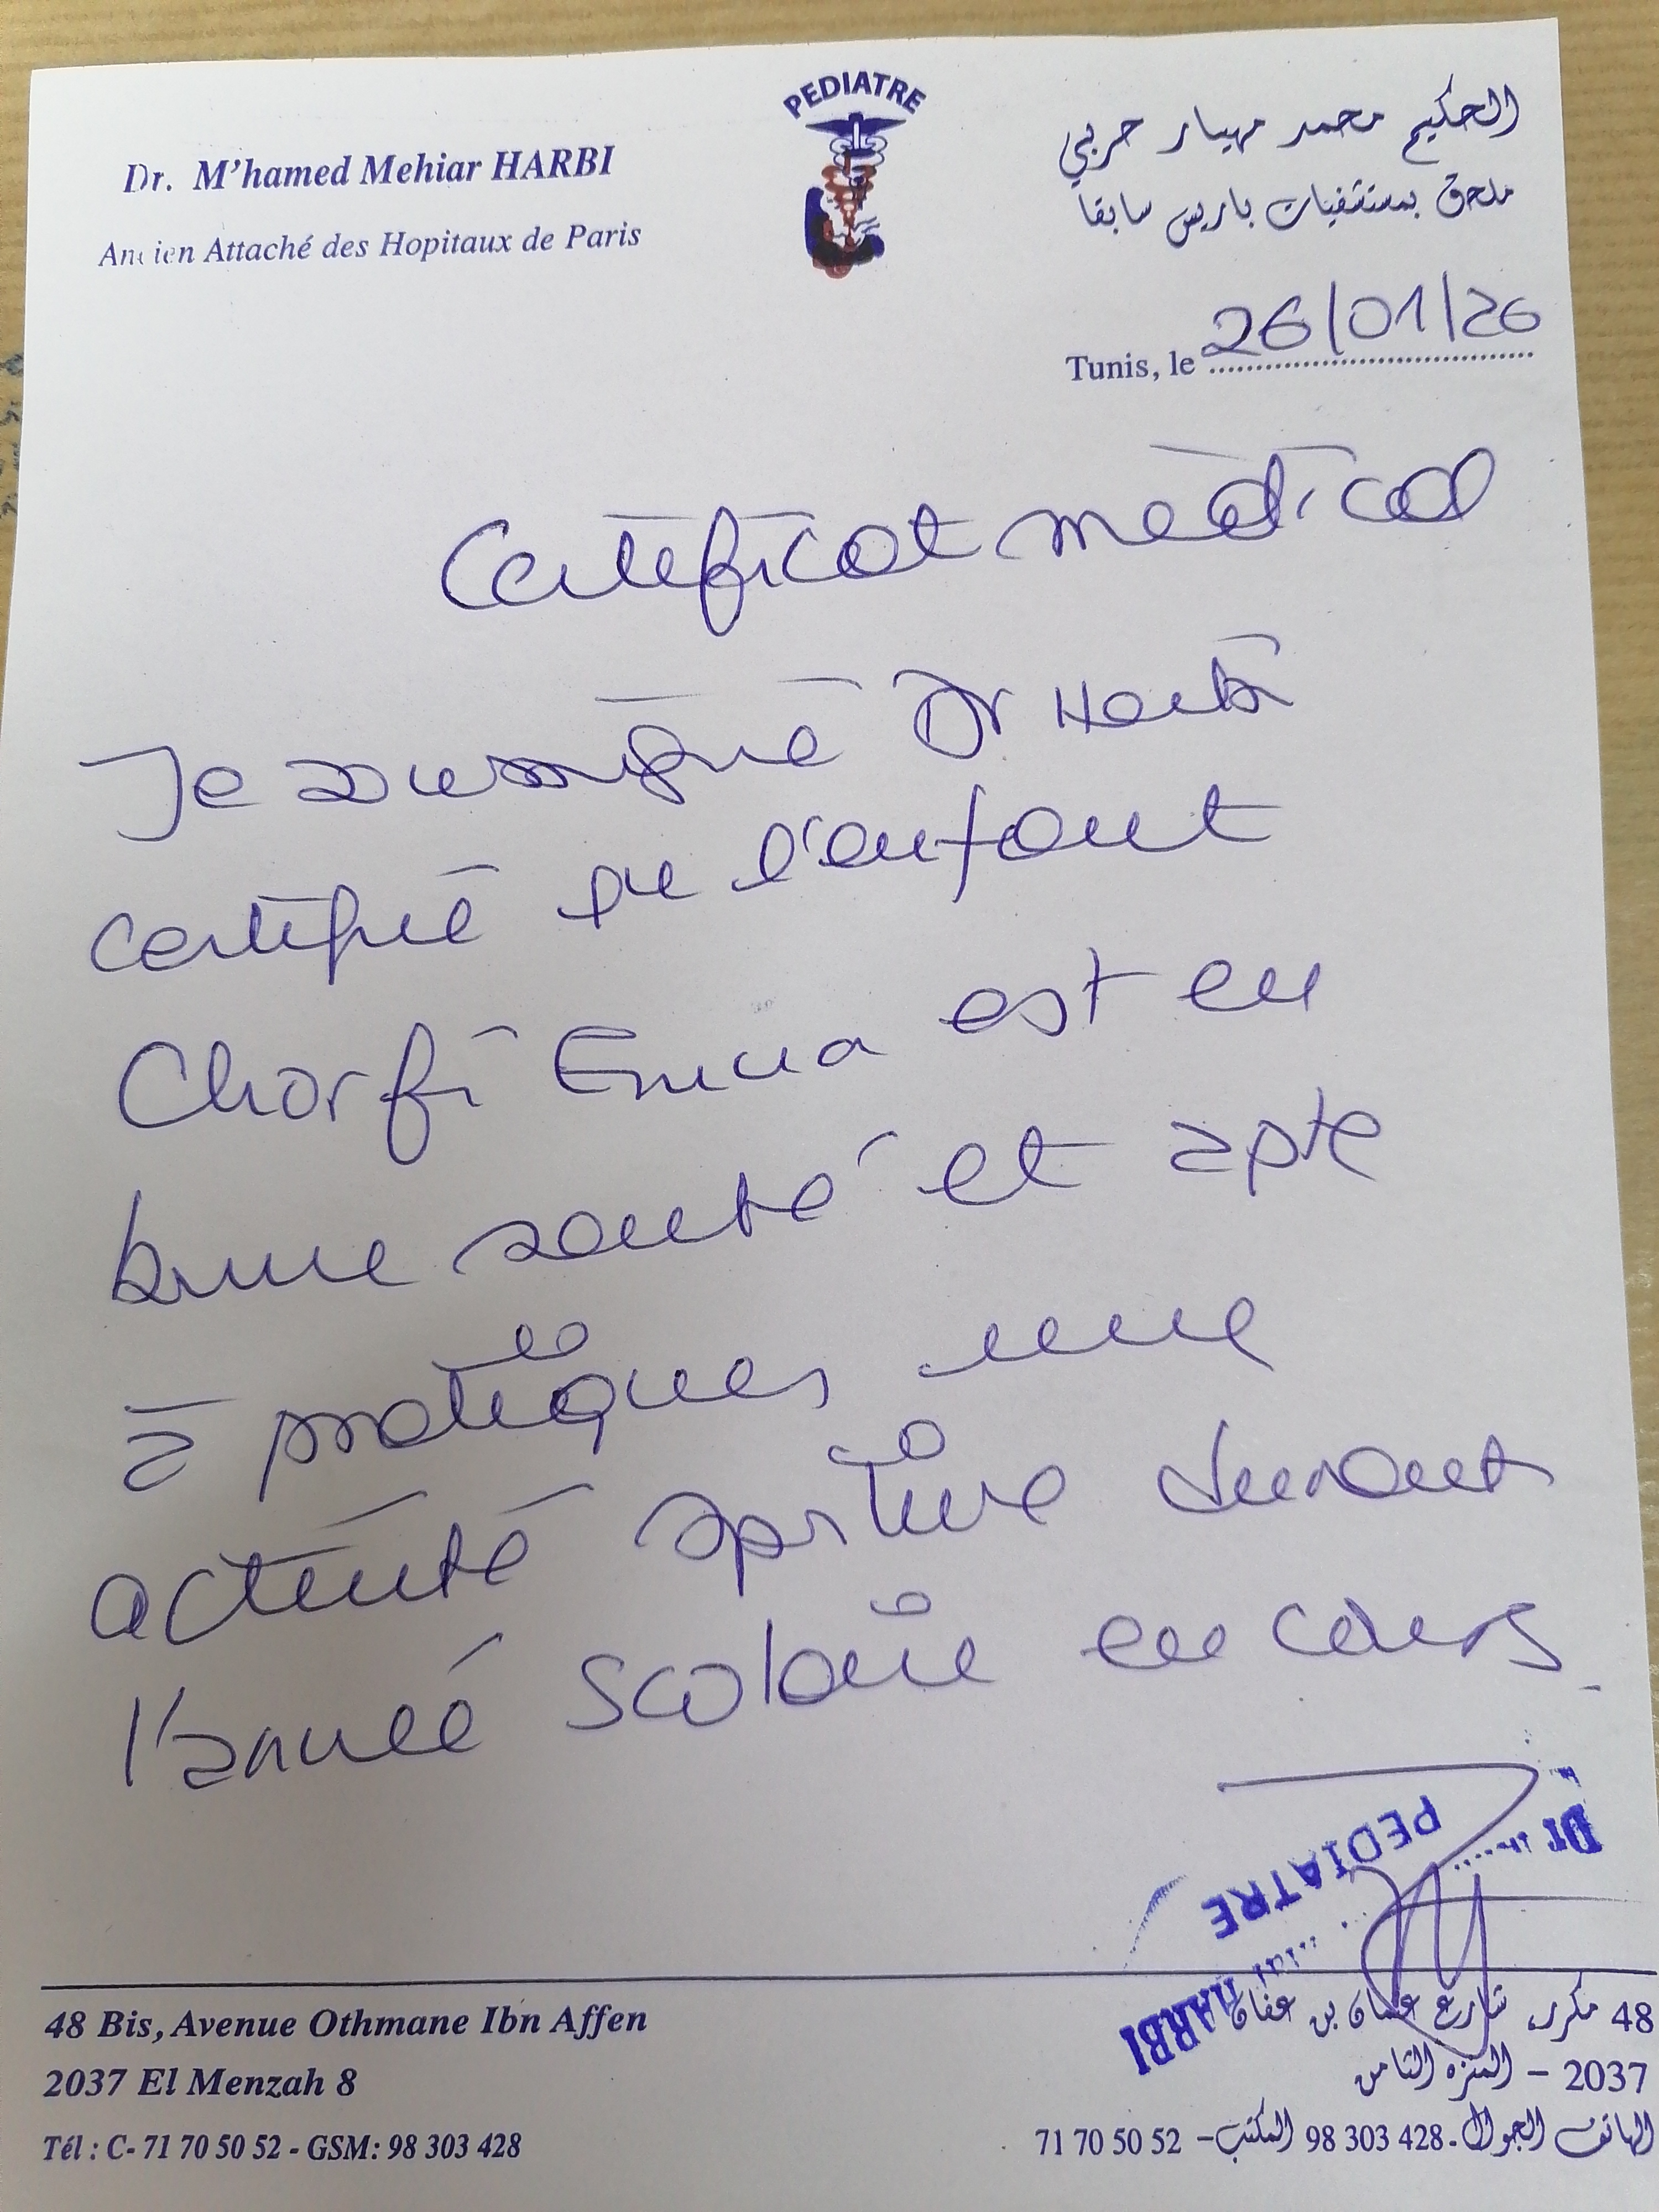 PEDIATRE
Dr. M'hamed Mehiar HARBI
Ancien Attaché des Hopitaux de Paris
الحكيم محمد مهيار حربي
ملحق بمستشفيات باريس سابقا
Tunis, le 26/01/26
Certificat médical
Je soussigné Dr Harbi
certifie que l'enfant
Chorfi Emna est en
bonne santé et apte
à pratiquer une
activité sportive durant
l'année scolaire en cours.
Dr
PEDIATRE
HARBI
48 Bis, Avenue Othmane Ibn Affen
2037 El Menzah 8
Tél : C- 71 70 50 52 - GSM: 98 303 428
48 مكرر، شارع عثمان بن عفان
2037 – المنزه الثامن
الهاتف الجوال. 98 303 428 المكتب– 71 70 50 52